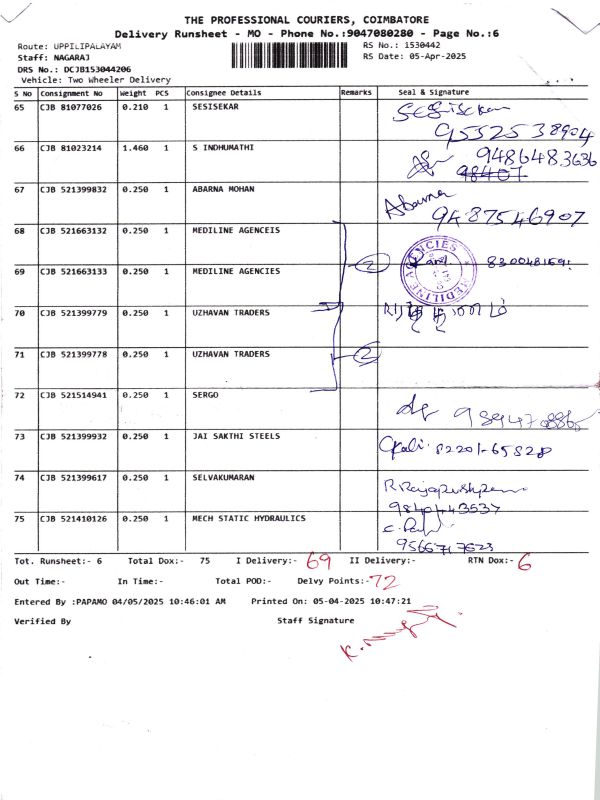 THE PROFESSIONAL COURIERS, COIMBATORE
Delivery Runsheet - MO - Phone No.:9047080280 - Page No.:6
Route: UPPILIPALAYAM
RS No.: 1530442
Staff: NAGARAJ
RS Date: 05-Apr-2025
DRS No.: DCJB153044206
Vehicle: Two Wheeler Delivery
S No Consignment No Weight PCS Consignee Details Remarks Seal & Signature
65 CJB 81077026 0.210 1 SESISEKAR
Sesisekar
9552538904
66 CJB 81023214 1.460 1 S INDHUMATHI
9486483636
98407
67 CJB 521399832 0.250 1 ABARNA MOHAN
Abarna
9487546907
68 CJB 521663132 0.250 1 MEDILINE AGENCEIS
2
MEDILINE AGENCIES
69 CJB 521663133 0.250 1 MEDILINE AGENCEIS
70 CJB 521399779 0.250 1 UZHAVAN TRADERS
71 CJB 521399778 0.250 1 UZHAVAN TRADERS
2
72 CJB 521514941 0.250 1 SERGO
73 CJB 521399932 0.250 1 JAI SAKTHI STEELS
82201-65828
74 CJB 521399617 0.250 1 SELVAKUMARAN
75 CJB 521410126 0.250 1 MECH STATIC HYDRAULICS
Tot. Runsheet:- 6 Total Dox:- 75 I Delivery:- 69 II Delivery:- RTN Dox:- 6
Out Time:- In Time:- Total POD:- Delvy Points:- 72
Entered By :PAPAMO 04/05/2025 10:46:01 AM Printed On: 05-04-2025 10:47:21
Verified By Staff Signature